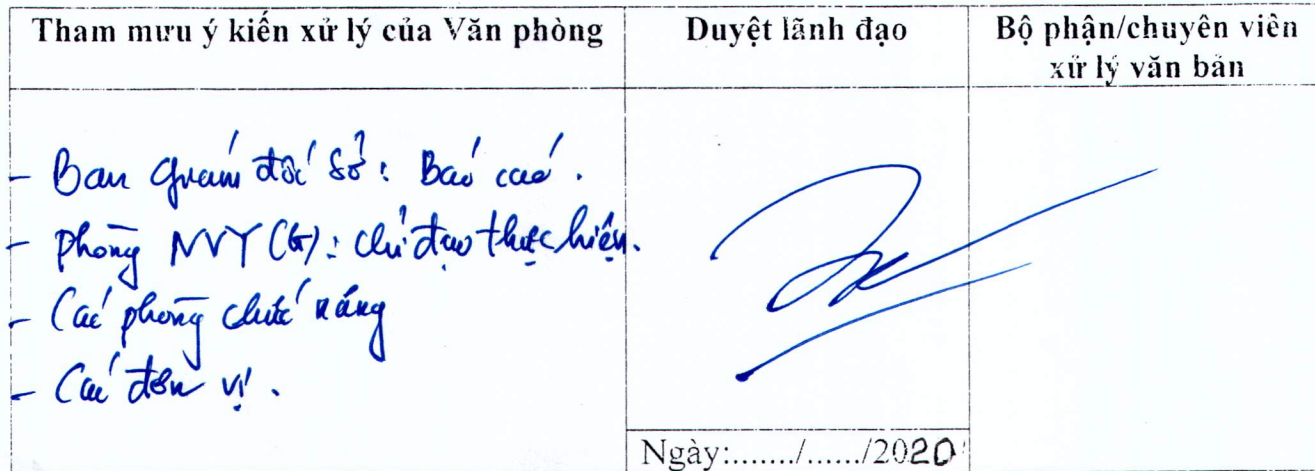 Tham mưu ý kiến xử lý của Văn phòng
Duyệt lãnh đạo
Bộ phận/chuyên viên
xử lý văn bản
- Ban Giám đốc Sở: Báo cáo.
- Phòng NVY (G): chỉ đạo thực hiện.
- Các phòng chức năng
- Các đơn vị.
Ngày:......./....../2020